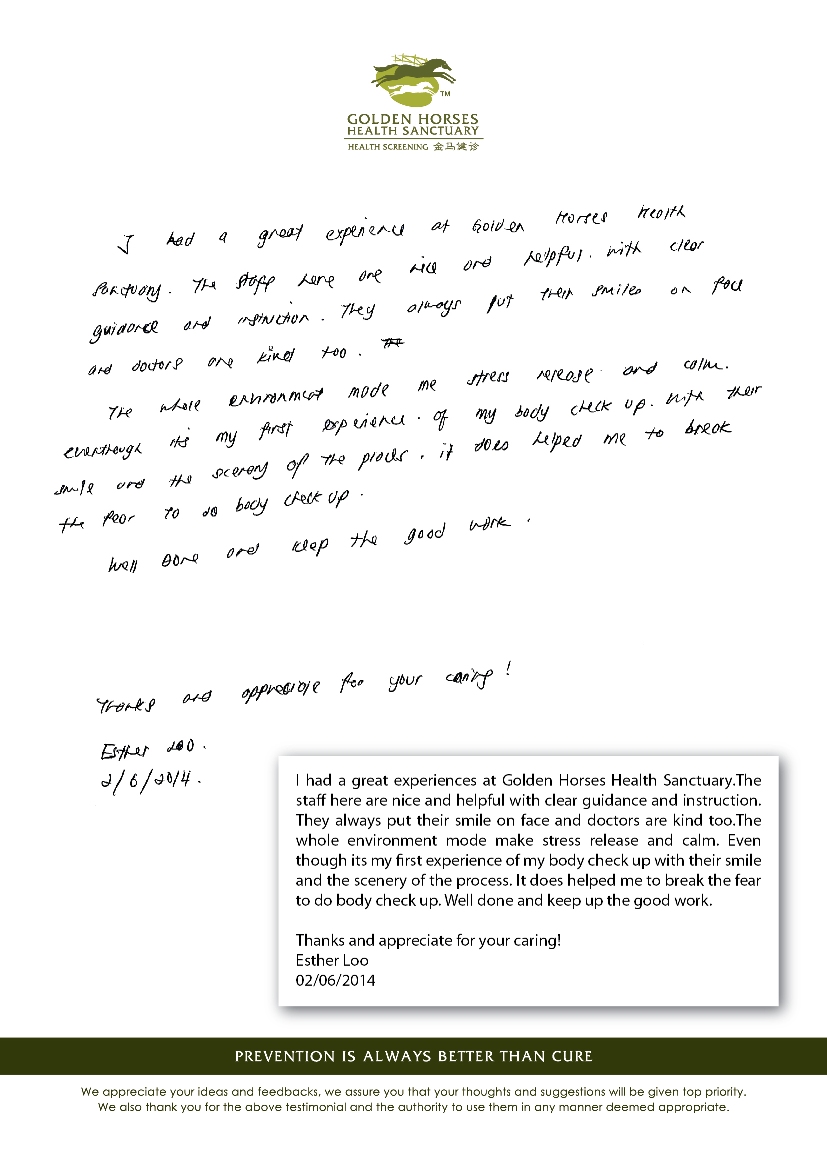 GOLDEN HORSES
HEALTH SANCTUARY
HEALTH SCREENING 金马健诊
TM
I had a great experience at Golden Horses Health
Sanctuary. The staff here are nice and helpful. with clear
guidance and instruction. They always put their smiles on face
and doctors are kind too. The
The whole environment made me stress release and calm.
eventhough its my first experience of my body check up. With their
smile and the scenery of the places, it does helped me to break
the fear to do body check up.
Well Done and keep the good work.
Thanks and appreciate for your caring!
Esther Loo.
2/6/2014.
I had a great experiences at Golden Horses Health Sanctuary.The
staff here are nice and helpful with clear guidance and instruction.
They always put their smile on face and doctors are kind too.The
whole environment mode make stress release and calm. Even
though its my first experience of my body check up with their smile
and the scenery of the process. It does helped me to break the fear
to do body check up. Well done and keep up the good work.
Thanks and appreciate for your caring!
Esther Loo
02/06/2014
PREVENTION IS ALWAYS BETTER THAN CURE
We appreciate your ideas and feedbacks, we assure you that your thoughts and suggestions will be given top priority.
We also thank you for the above testimonial and the authority to use them in any manner deemed appropriate.